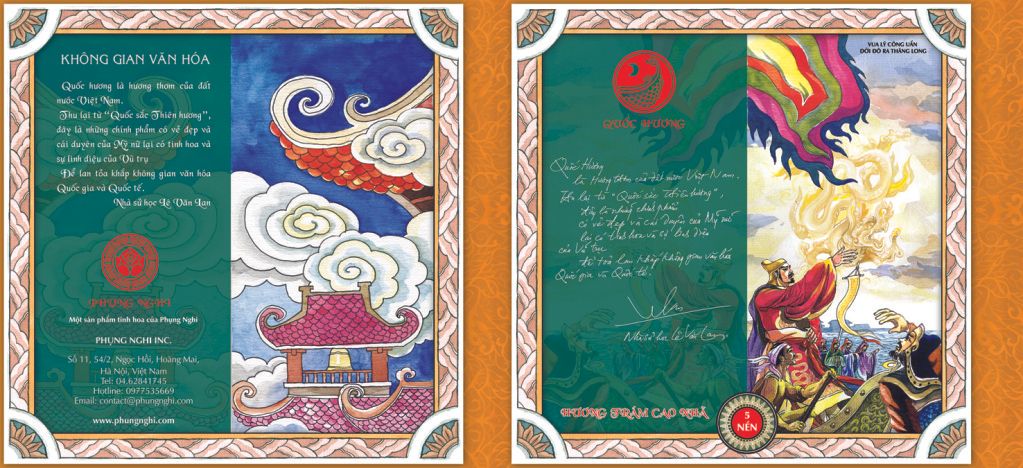 KHÔNG GIAN VĂN HÓA
Quốc hương là hương thơm của đất
nước Việt Nam.
Thu lại từ "Quốc sắc Thiên hương",
đây là những chính phẩm có vẻ đẹp và
cái duyên của Mỹ nữ lại có tinh hoa và
sự linh diệu của Vũ trụ
Để lan tỏa khắp không gian văn hóa
Quốc gia và Quốc tế.
Nhà sử học Lê Văn Lan
PHỤNG NGHI
Một sản phẩm tinh hoa của Phụng Nghi
PHỤNG NGHI INC.
Số 11, 54/2, Ngọc Hồi, Hoàng Mai,
Hà Nội, Việt Nam
Tel: 04.62841745
Hotline: 0977535669
Email: contact@phungnghi.com
www.phungnghi.com
VUA LÝ CÔNG UẨN
DỜI ĐÔ RA THĂNG LONG
QUỐC HƯƠNG
Quốc Hương
là Hương thơm của đất nước Việt Nam.
Thu lại từ "Quốc sắc Thiên hương",
đây là những chính phẩm
có vẻ đẹp và cái duyên của Mỹ nữ
lại có tinh hoa và sự linh diệu
của Vũ trụ
để toả lan khắp không gian văn hóa
Quốc gia và Quốc tế!
Nhà sử học Lê Văn Lan
HƯƠNG TRẦM CAO NHÃ
5
NÉN